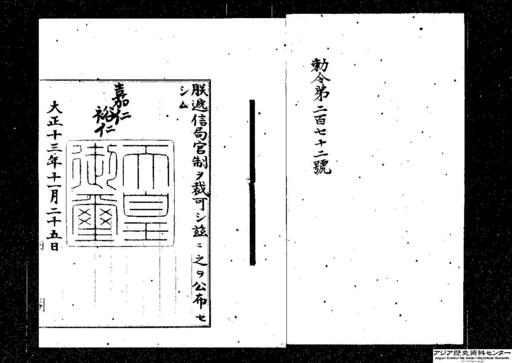 勅令第二百七十二號
朕遞信局官制ヲ裁可シ茲ニ之ヲ公布セ
シム
嘉仁
裕仁
天皇
御璽
大正十三年十一月二十五日
アジア歴史資料センター
Japan Center for Asian Historical Records